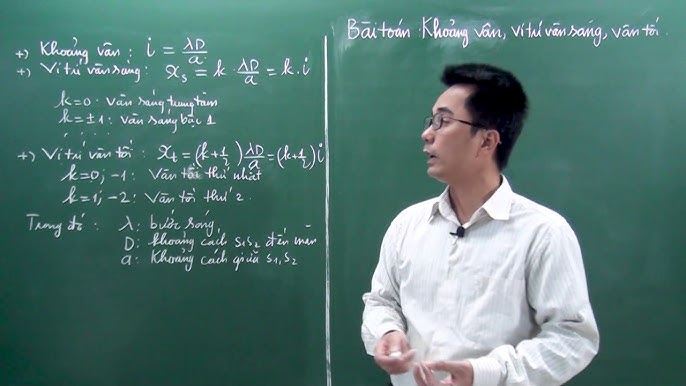 +) Khoảng vân : i = λD/a
+) Vị trí vân sáng : xₛ = k · λD/a = k · i
k=0 : vân sáng trung tâm
k=±1 : vân sáng bậc 1
. . . .
+) Vị trí vân tối : xₜ = (k+1/2) λD/a = (k+1/2) i
k=0; -1 : Vân tối thứ nhất
k=1; -2 : Vân tối thứ 2.
Trong đó : λ : bước sóng
D : khoảng cách S₁S₂ đến màn
a : Khoảng cách giữa S₁, S₂
Bài toán : Khoảng vân, vị trí vân sáng, vân tối.